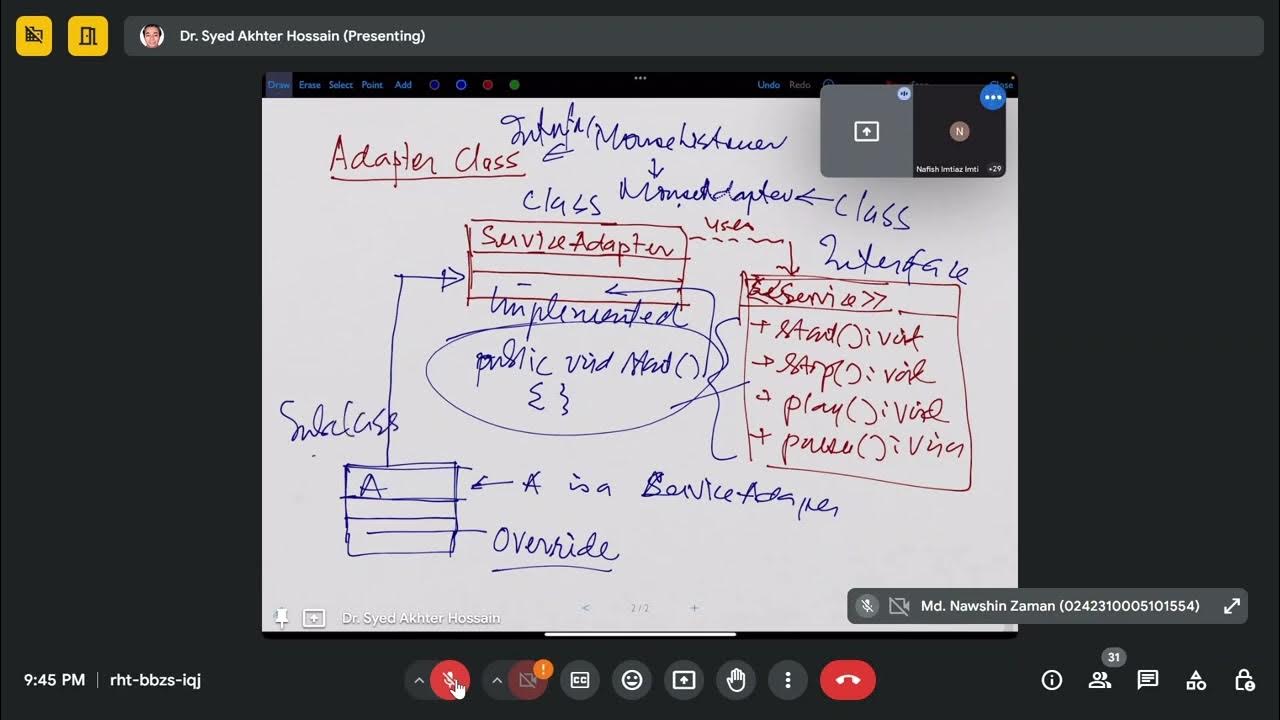 Dr. Syed Akhter Hossain (Presenting)
Draw Erase Select Point Add Undo Redo Close
Nafish Imtiaz Imti +29
Adapter Class
MouseListener
MouseAdapter ← Class
Class
uses
ServiceAdapter
Interface
<<Service>>
Implemented
+ start() : void
+ stop() : void
+ play() : void
+ pause() : void
public void start()
{ }
Subclass
A
← A is a ServiceAdapter
Override
2/2
Dr. Syed Akhter Hossain
Md. Nawshin Zaman (0242310005101554)
9:45 PM | rht-bbzs-iqj
CC
31